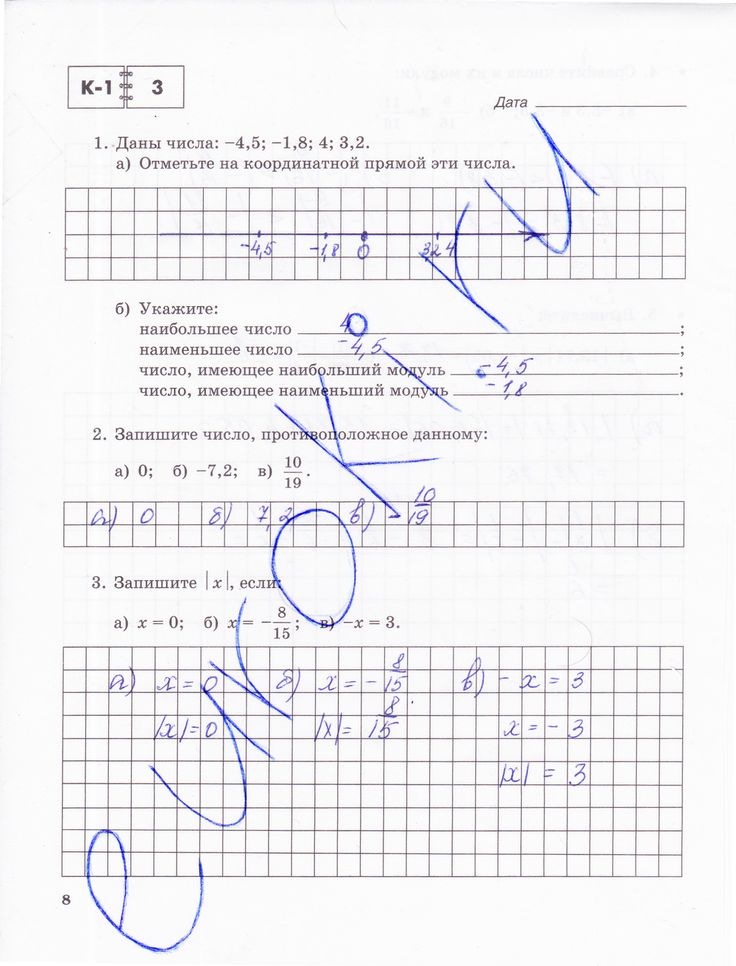 К-1 3
Дата
1. Даны числа: −4,5; −1,8; 4; 3,2.
а) Отметьте на координатной прямой эти числа.
−4,5 −1,8 0 3,2 4
б) Укажите:
наибольшее число 4 ;
наименьшее число −4,5 ;
число, имеющее наибольший модуль −4,5 ;
число, имеющее наименьший модуль −1,8 .
2. Запишите число, противоположное данному:
а) 0; б) −7,2; в) 10/19.
а) 0 б) 7,2 в) −10/19
3. Запишите |x|, если:
а) x = 0; б) x = −8/15; в) −x = 3.
а) x = 0 б) x = −8/15 в) −x = 3
|x| = 0 |x| = 8/15 x = −3
|x| = 3
8